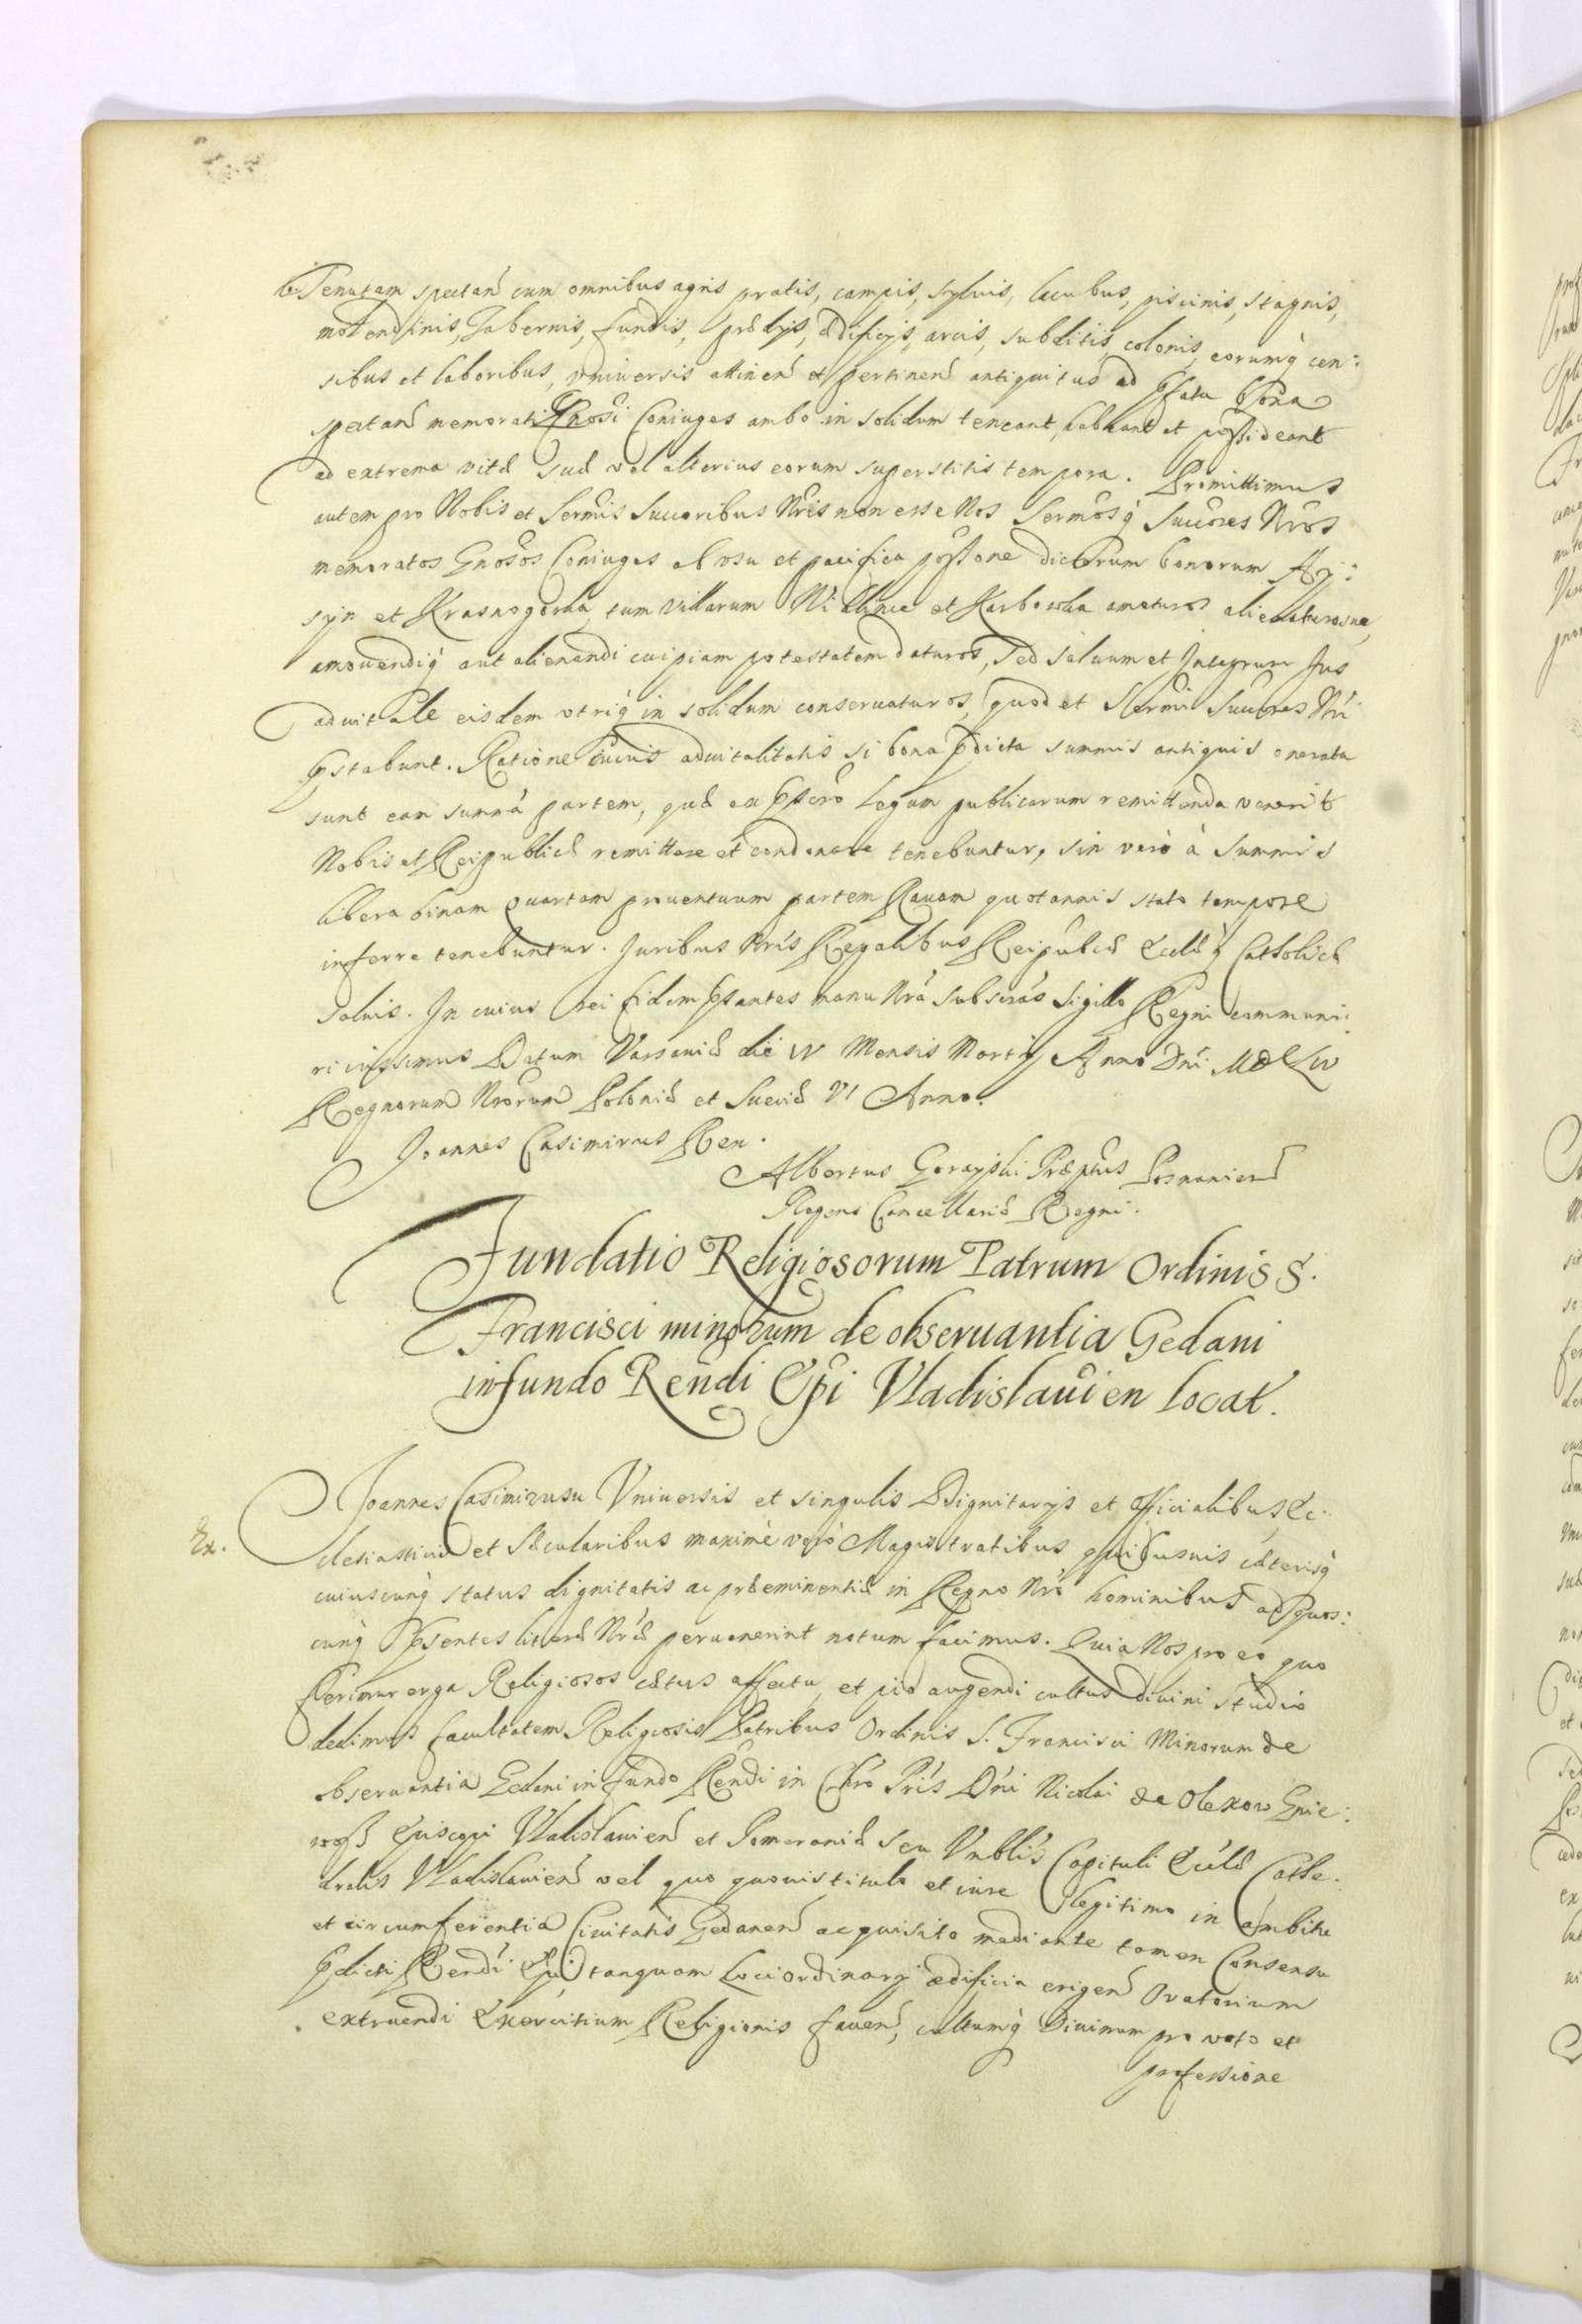 Tenutam spectan cum omnibus agris pratis, campis, sylvis, lacubus, piscinis, stagnis,
molendinis, Tabernis, fundis, prædijs, ædificijs, arcis, subditis, colonis, eorumq cen:
sibus et laboribus, vniuersis attinen et pertinen antiquitus ad pfata bona
spectan memorati Gnosi Coniuges ambo in solidum teneant, habeant et possideant
ad extrema vitæ suæ vel alterius eorum superstitis tempora. Promittimus
autem pro Nobis et Sermis Succoribus Nris non esse Nos Sermosq Succores Nros
memoratos Gnosos Coniuges ab vsu et pacifica possone dictorum bonorum
et Krasnogorka, tum villarum et Karbowka amoturos alienaturosue,
amouendiq aut alienandi cuipiam potestatem daturos, sed saluum et Integrum Jus
aduitale eisdem vtriq in solidum conseruaturos, quod et Sermi Succores Nri
pstabunt. Ratione cuius aduitalitatis si bona pdicta summis antiquis onerata
sunt eam summa partem, quæ ex pscro Legum publicarum remittenda venerit
Nobis et Reipublicæ remittere et condonare tenebuntur, sin verò à Summis
libera binam quartam prouentuum partem Rauam quotannis stato tempore
inferre tenebuntur. Juribus Nris Regalibus Reipubcæ Ecclæq Catholicæ
saluis. In cuius rei fidem psantes manu Nra subscras Sigillo Regni communi:
ri iussimus Datum Varsauiæ die IV Mensis Martij Anno Dni MDCLIV
Regnorum Nrorum Poloniæ et Sueciæ VI Anno.
Joannes Casimirus Rex.
Albertus Gorayski Præptus Posnanien
Regens Cancellariæ Regni.
Fundatio Religiosorum Patrum Ordinis S.
Francisci minorum de obseruantia Gedani
in fundo Rendi Epi Vladislauien locat.
Ex.
Joannes Casimirus Vniuersis et singulis Dignitarijs et officialibus, Ec:
clesiasticis et Sæcularibus maximè verò Magistratibus quibusuis cæterisq
cuiuscunq status dignitatis ac præeminentiæ in Regno Nro hominibus ad quos:
cunq Psentes literæ Nræ peruenerint notum facimus. Quia Nos pro eo quo
ferimur erga Religiosos cætus affectu, et pio augendi cultus diuini studio
dedimus facultatem Religiosis Patribus Ordinis S. Francisci Minorum de
obseruantia Gedani in fundo Rendi in Chro Pris Dni Nicolai de Olexow Gnie:
wosz Episcopi Vladislauien et Pomeraniæ seu Vnblis Capituli Ecclæ Cathe.
dralis Vladislauien vel quo quouis titulo et iure legitimo in ambitu
et circumferentia Ciuitatis Gedanen acquisito mediante tamen Consensu
Pdicti Rendi Epi tanquam Loci ordinarij ædificia erigen Oratorium
extruendi Exercitium Religionis fauen, cultumq Diuinum pro voto et
professione